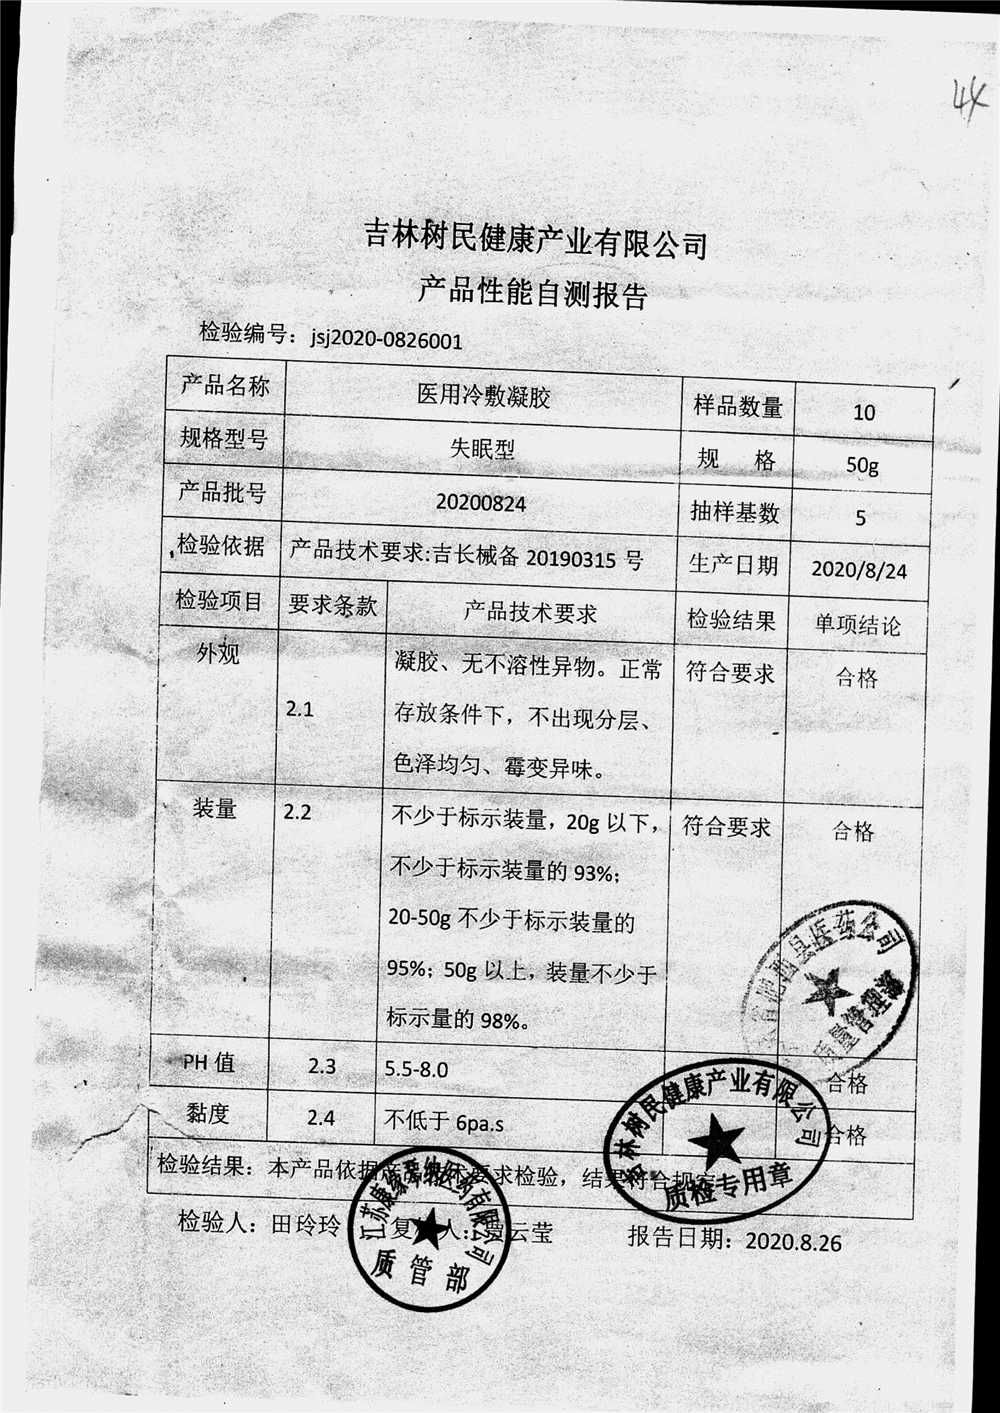 44
吉林树民健康产业有限公司
产品性能自测报告
检验编号：jsj2020-0826001
产品名称 医用冷敷凝胶 样品数量 10
规格型号 失眠型 规 格 50g
产品批号 20200824 抽样基数 5
检验依据 产品技术要求:吉长械备 20190315 号 生产日期 2020/8/24
检验项目 要求条款 产品技术要求 检验结果 单项结论
外观 2.1 凝胶、无不溶性异物。正常 符合要求 合格
存放条件下，不出现分层、
色泽均匀、霉变异味。
装量 2.2 不少于标示装量，20g 以下， 符合要求 合格
不少于标示装量的 93%；
20-50g 不少于标示装量的
95%；50g 以上，装量不少于
标示量的 98%。
PH 值 2.3 5.5-8.0 合格
黏度 2.4 不低于 6pa.s 合格
检验结果：本产品依据产品技术要求检验，结果符合规定
检验人：田玲玲 复核人：贾云莹 报告日期：2020.8.26
肥西县医药公司
质量管理部
吉林树民健康产业有限公司
质检专用章
江苏康缘 医药有限公司
质管部